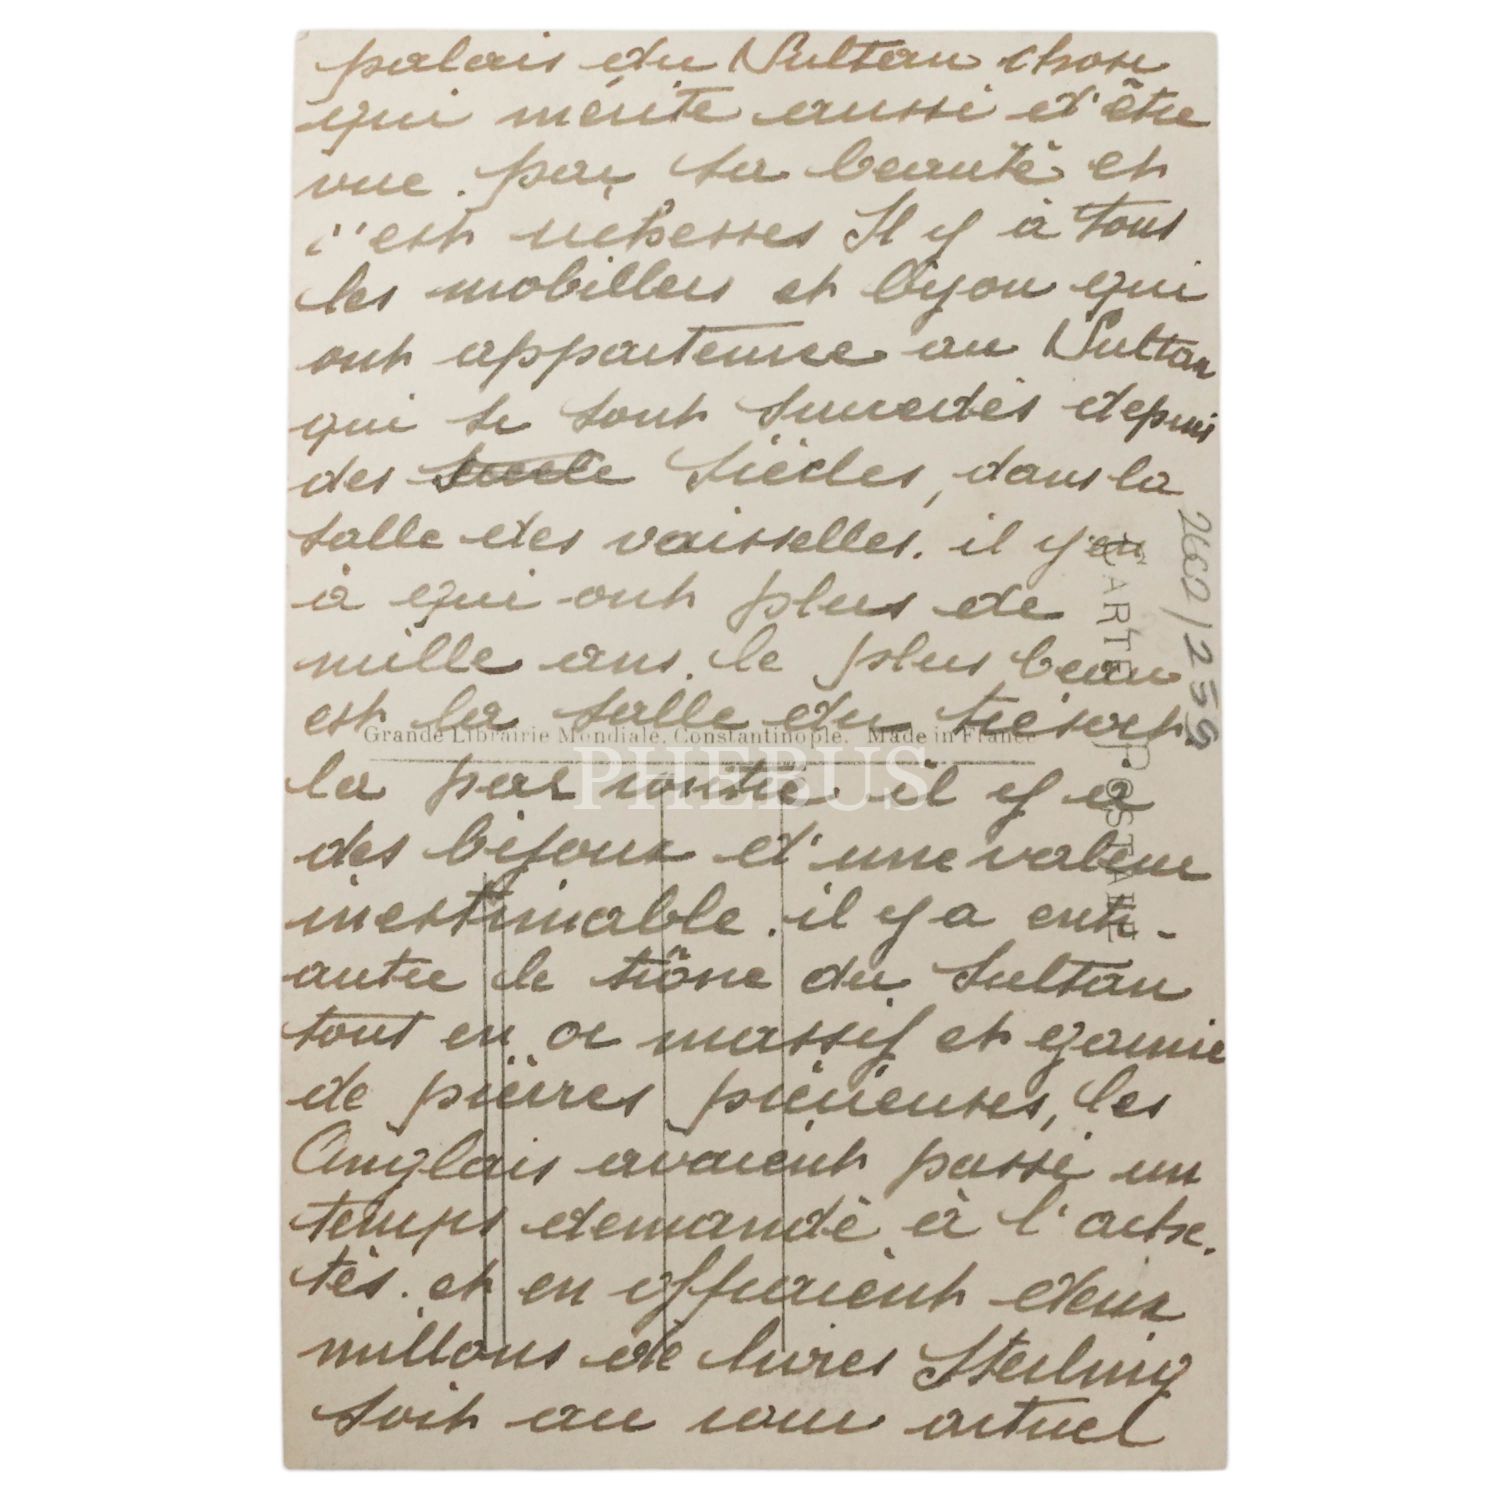 palais du Sultan chose
qui mérite aussi d'être
vue. par sa beauté et
c'est richesses Il y à tous
les mobilliers et bijou qui
ont appartenue au Sultan
qui se sont succedés depuis
des siècles, dans la
salle des vaisselles. il y en
à qui ont plus de
mille ans. le plus beau
est la salle du trésort.
Grande Librairie Mondiale. Constantinople. Made in France
PHEBUS
la par contre il y a
des bijoux d'une valeur
inestimable. il y a entr-
autre le trône du Sultan
tout en or massif et garnie
de pièrres précieuses, les
Anglais avaient passé un
temps demandé à l'ache.
tés. et en offraient deux
millons de livres Sterling
soit au cour actuel
CARTE POSTALE
2662/255